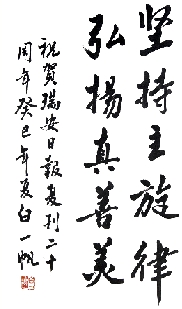 坚持主旋律
弘揚真善美
祝賀瑞安日報复刊二十
周年癸巳年夏白一帆